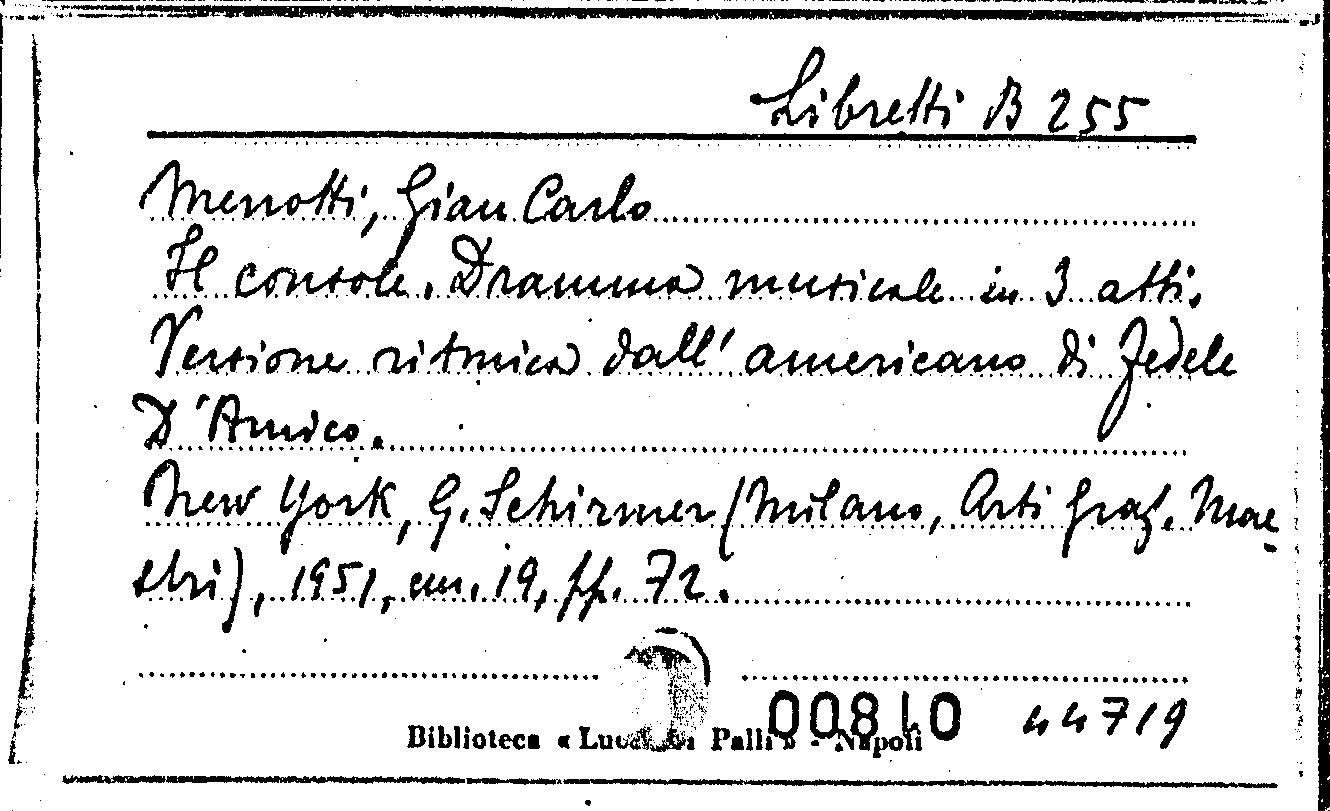 Libretti B 255
Menotti, Gian Carlo
Il console. Dramma musicale in 3 atti.
Versione ritmica dall'americano di Fedele
D'Amico.
New York, G. Schirmer (Milano, Arti Graf. Mae-
stri), 1951, cm. 19, pp. 72.
00810 44719
Biblioteca « Lucchesi Palli » - Napoli